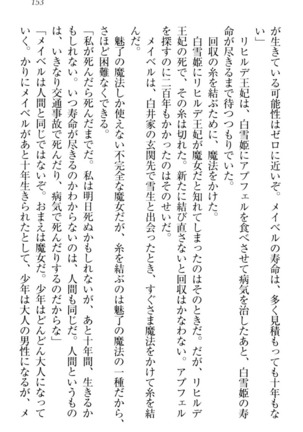 153
が生きている可能性はゼロに近いぞ。メイベルの寿命は、多く見積もっても十年もな
い」
リヒルデ王妃は、白雪姫にアプフェルを食べさせて病気を治したあと、白雪姫の寿
命が尽きるまで待つつもりでいた。
回収の糸を結ぶために、魔法をかけた。
白雪姫にリヒルデ王妃が魔女だと知れてしまったのはそのときだ。だが、リヒルデ
王妃の死で、その糸は切れた。新たに結び直さないと回収はかなわない。アプフェル
を探すのに二百年もかかったのはそのせいだ。
メイベルは、白井家の玄関先で雪生と出会ったとき、すぐさま魔法をかけて糸を結
んだ。
魅了の魔法しか使えない不完全な魔女だが、糸を結ぶのは魅了の魔法の一種だから、
さほど困難なくできる。
「私が死んだら死んだまでだ。私は明日死ぬかもしれないが、あと十年間、生きるか
もしれない。いつ寿命が尽きるのかわからないのは、人間も同じだ。人間というもの
は、いきなり交通事故で死んだり、病気で死んだりするのだからな」
「メイベルは人間と同じではないぞ。おまえは魔女だ。少年はどんどん大人になって
いく。かりにメイベルがあと十年生きられたとして、少年は大人の男性になるが、メ